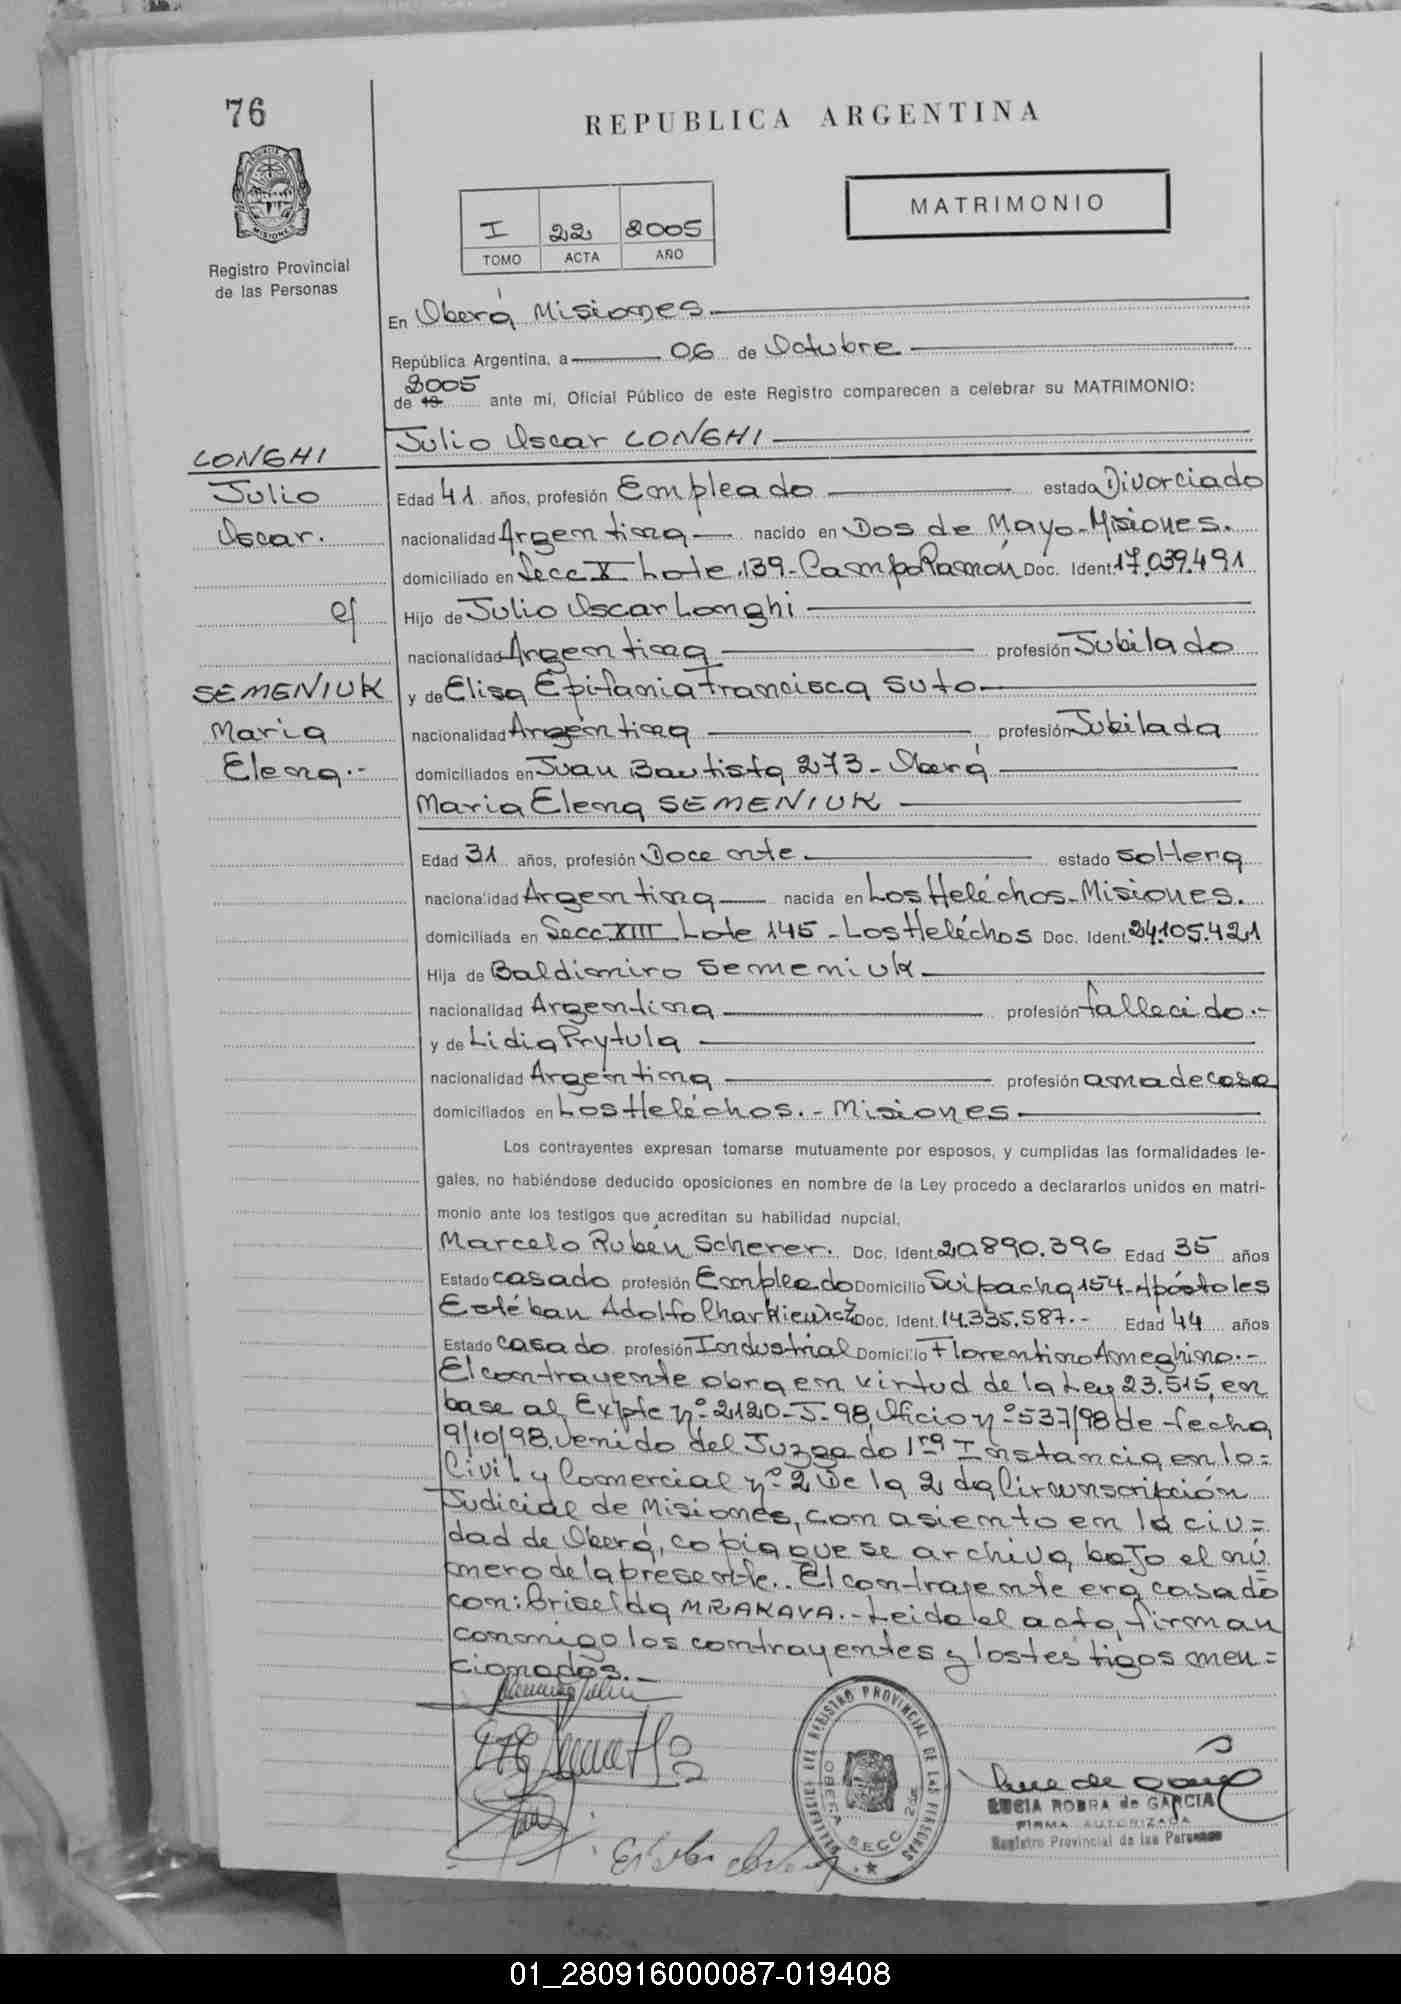 76
REPUBLICA ARGENTINA
MATRIMONIO
I 22 2005
TOMO ACTA AÑO
MISIONES
Registro Provincial
de las Personas
En Oberá Misiones
República Argentina, a 06 de Octubre
2005
de 19 ante mi, Oficial Público de este Registro comparecen a celebrar su MATRIMONIO:
Julio Oscar LONGHI
LONGHI
Julio
Oscar.
c/
SEMENIUK
Maria
Elena.-
Edad 41 años, profesión Empleado estado Divorciado
nacionalidad Argentina nacido en Dos de Mayo-Misiones.
domiciliado en Secc X Lote 139-Campo Ramón Doc. Ident. 17.039.491
Hijo de Julio Oscar Longhi
nacionalidad Argentina profesión Jubilado
y de Elisa Epifania Francisca Suto
nacionalidad Argentina profesión Jubilada
domiciliados en Juan Bautista 273-Oberá
Maria Elena SEMENIUK
Edad 31 años, profesión Docente estado soltera
nacionalidad Argentina nacida en Los Heléchos-Misiones.
domiciliada en Secc XIII Lote 145-Los Heléchos Doc. Ident. 24.105.421
Hija de Baldimiro Semeniuk
nacionalidad Argentina profesión fallecido.-
y de Lidia Prytula
nacionalidad Argentina profesión ama de casa
domiciliados en Los Heléchos.-Misiones
Los contrayentes expresan tomarse mutuamente por esposos, y cumplidas las formalidades le-
gales, no habiéndose deducido oposiciones en nombre de la Ley procedo a declararlos unidos en matri-
monio ante los testigos que acreditan su habilidad nupcial,
Marcelo Rubén Scherer. Doc. Ident. 20.890.396 Edad 35 años
Estado casado profesión Empleado Domicilio Suipacha 154-Apóstoles
Estéban Adolfo Charkiewicz Doc. Ident. 14.335.587.- Edad 44 años
Estado casado profesión Industrial Domicilio Florentino Ameghino.-
El contrayente obra en virtud de la Ley 23.515, en
base al Expte nº 2120-J-98, Oficio nº 537/98 de fecha
9/10/98. venido del Juzgado 1ra Instancia en lo=
Civil y Comercial nº 2 De la 2 da Circunscripción
Judicial de Misiones, con asiento en la ciu=
dad de Oberá, copia que se archiva bajo el nú
mero de la presente.. El contrayente era casado
con: Griselda MRAKAVA.-Leido el acto, firman
conmigo los contrayentes y los testigos men=
cionados.-
REGISTRO PROVINCIAL DE LAS PERSONAS
OBERA SECC 2da
LUCIA ROBRA de GARCIA
FIRMA AUTORIZADA
Registro Provincial de las Personas
01_280916000087-019408